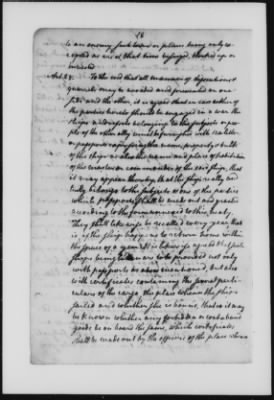 to an enemy, such towns or places being only re-
as are at that time besieged, blocked up or
invested
Art. 27. To the end that all manner of dissentions &
quarrels may be avoided and prevented on one
side and the other, it is agreed that in case either of
the parties hereto should be engaged in a war the
ships & vessels belonging to the subjects or peo-
ple of the other ally must be furnished with sea letters
or passports expressing the name, property & bulk
of the ship as also the name and place of habitation
of the master or commander of the said ship, that
it may appear thereby that the ship really &
truly belongs to the subjects of one of the parties
which passports shall be made out and granted
according to the form annexed to this treaty.
They shall likewise be recalled every year, that
is if the ship happens to return home within
the space of a year. It is likewise agreed that such
ships being laden are to be provided not only
with passports as above mentioned, but also
with certificates containing the several parti-
culars of the cargo, the place whence the ship
sailed and whither she is bound, that so it may
be known whether any forbidden or contraband
goods be on board the same, which certificates
shall be made out by the officers of the place whence